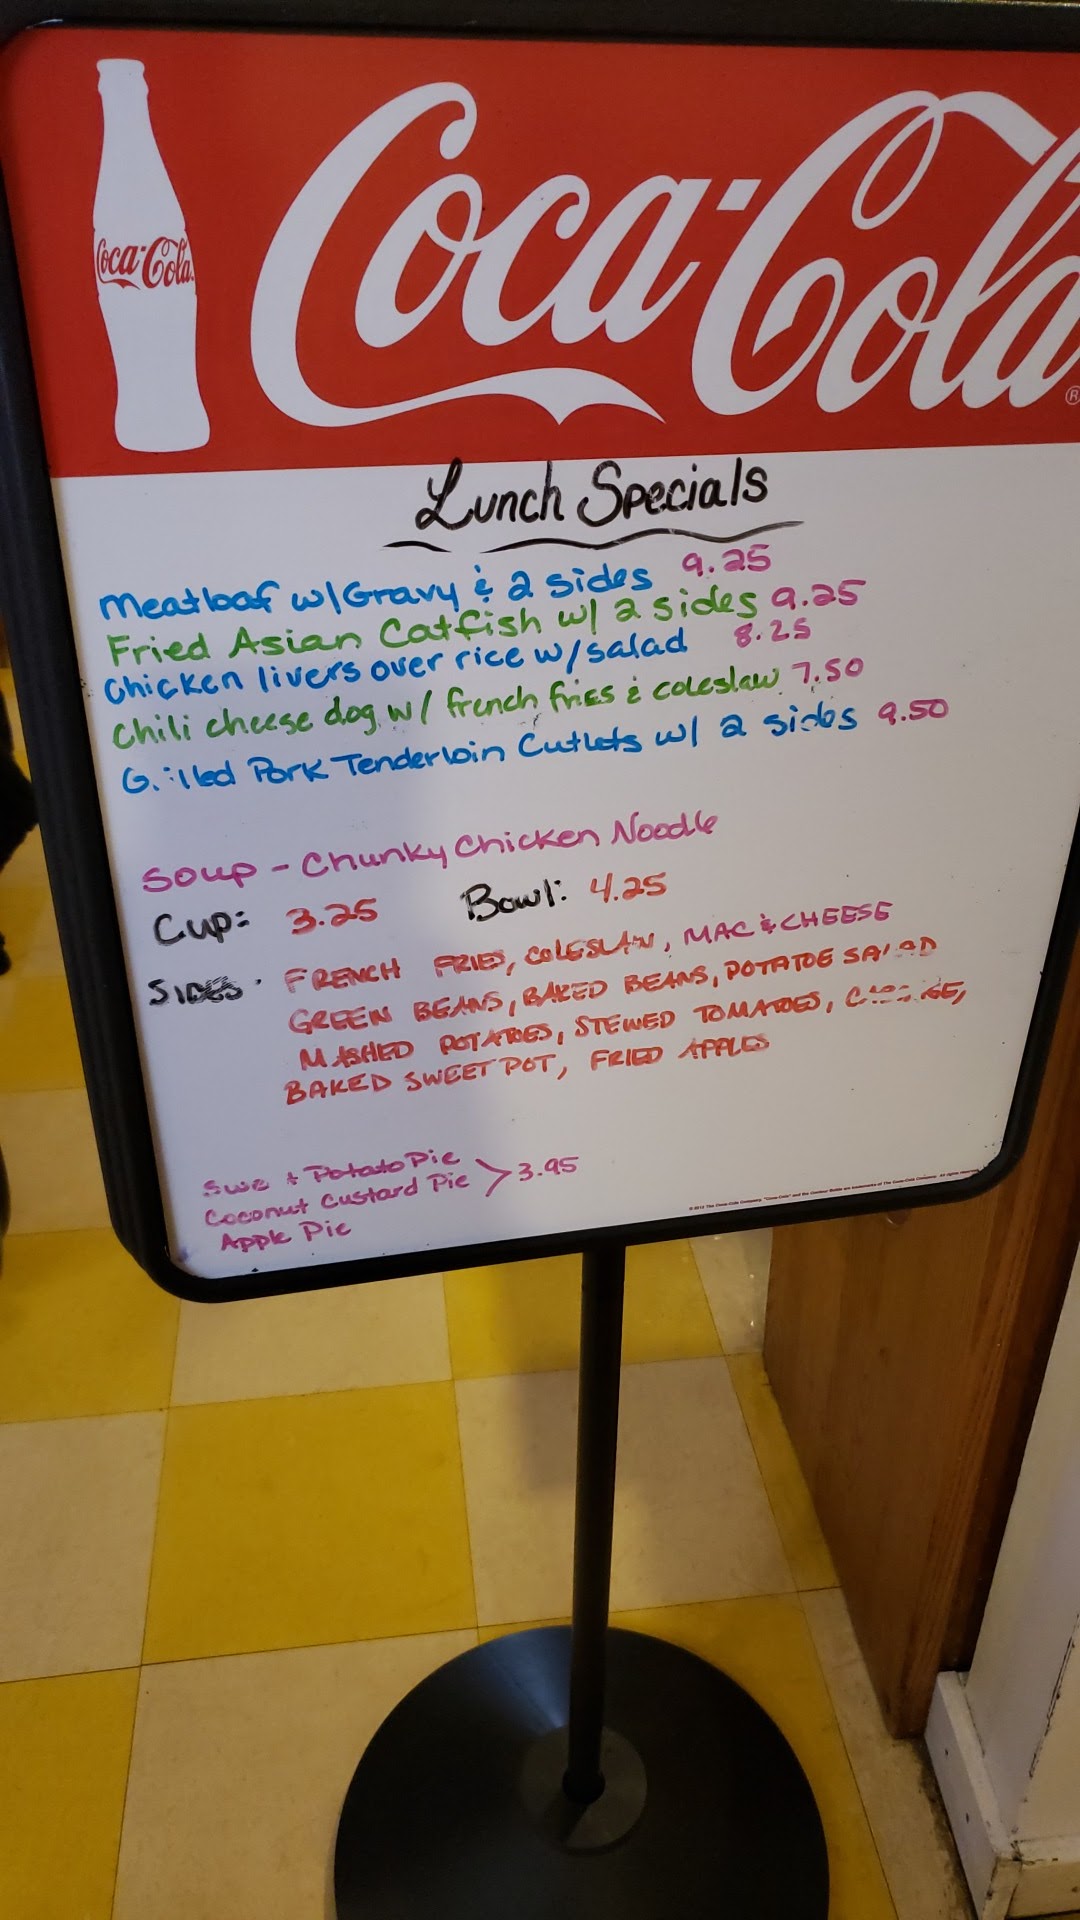 Coca-Cola
Coca-Cola®
Lunch Specials
Meatloaf w/Gravy & 2 sides 9.25
Fried Asian Catfish w/ 2 sides 9.25
Chicken livers over rice w/salad 8.25
Chili cheese dog w/ french fries & coleslaw 7.50
Grilled Pork Tenderloin Cutlets w/ 2 sides 9.50
Soup - Chunky Chicken Noodle
Cup: 3.25 Bowl: 4.25
SIDES: FRENCH FRIES, COLESLAW, MAC & CHEESE
GREEN BEANS, BAKED BEANS, POTATOE SALAD
MASHED POTATOES, STEWED TOMATOES, CABBAGE,
BAKED SWEET POT, FRIED APPLES
Sweet Potato Pie
Coconut Custard Pie > 3.95
Apple Pie